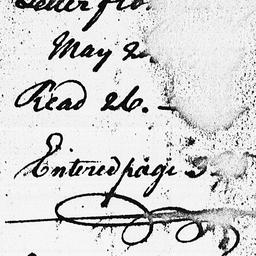 Letter fro
May 2
Read 26. –
Entered page 3